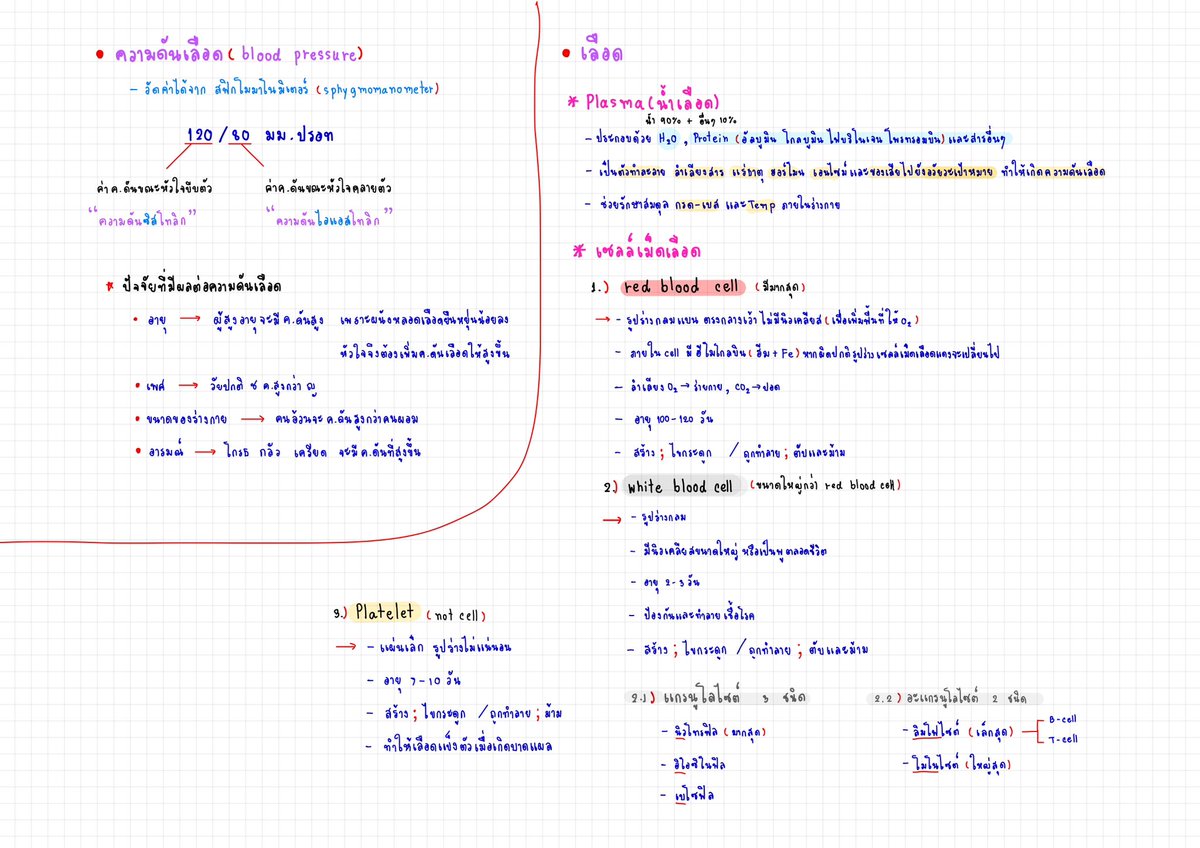 • ความดันเลือด (blood pressure)
- วัดค่าได้จาก สฟิกโมมาโนมิเตอร์ (sphygmomanometer)
120 / 80 มม.ปรอท
ค่าค.ดันขณะหัวใจบีบตัว
"ความดันซิสโทลิก"
ค่าค.ดันขณะหัวใจคลายตัว
"ความดันไดแอสโทลิก"
* ปัจจัยที่มีผลต่อความดันเลือด
• อายุ → ผู้สูงอายุจะมีค.ดันสูง เพราะผนังหลอดเลือดยืดหยุ่นน้อยลง
หัวใจจึงต้องเพิ่มค.ดันเลือดให้สูงขึ้น
• เพศ → วัยปกติ ช ค.สูงกว่า ญ
• ขนาดของร่างกาย → คนอ้วนจะค.ดันสูงกว่าคนผอม
• อารมณ์ → โกรธ กลัว เครียด จะมีค.ดันที่สูงขึ้น
• เลือด
* Plasma (น้ำเลือด)
น้ำ 90% + อื่นๆ 10%
- ประกอบด้วย H₂O , Protein (อัลบูมิน โกลบูมิน ไฟบริโนเจน โพรทรอมบิน) และสารอื่นๆ
- เป็นตัวทำละลาย ลำเลียงสาร แร่ธาตุ ฮอร์โมน เอนไซม์และของเสียไปยังอวัยวะเป้าหมาย ทำให้เกิดความดันเลือด
- ช่วยรักษาสมดุล กรด-เบส และTemp ภายในร่างกาย
* เซลล์เม็ดเลือด
1.) red blood cell (มีมากสุด)
→ - รูปร่างกลมแบน ตรงกลางเว้า ไม่มีนิวเคลียส (เพื่อเพิ่มพื้นที่ให้ O₂)
- ภายใน cell มีฮีโมโกลบิน (ฮีม + Fe) หากผิดปกติรูปร่างเซลล์เม็ดเลือดแดงจะเปลี่ยนไป
- ลำเลียง O₂ → ร่ายกาย, CO₂ → ปอด
- อายุ 100-120 วัน
- สร้าง ; ไขกระดูก / ถูกทำลาย ; ตับและม้าม
2.) white blood cell (ขนาดใหญ่กว่า red blood cell)
→ - รูปร่างกลม
- มีนิวเคลียสขนาดใหญ่ หรือเป็นพู ตลอดชีวิต
- อายุ 2-3 วัน
- ป้องกันและทำลายเชื้อโรค
- สร้าง ; ไขกระดูก / ถูกทำลาย ; ตับและม้าม
2.1) แกรนูโลไซต์ 3 ชนิด
- นิวโทรฟิล (มากสุด)
- อิโอซิโนฟิล
- เบโซฟิล
2.2) อะแกรนูโลไซต์ 2 ชนิด
- ลิมโฟไซต์ (เล็กสุด)
B-cell
T-cell
- โมโนไซต์ (ใหญ่สุด)
3.) Platelet (not cell)
→ - แผ่นเล็ก รูปร่างไม่แน่นอน
- อายุ 7-10 วัน
- สร้าง ; ไขกระดูก / ถูกทำลาย ; ม้าม
- ทำให้เลือดแข็งตัวเมื่อเกิดบาดแผล